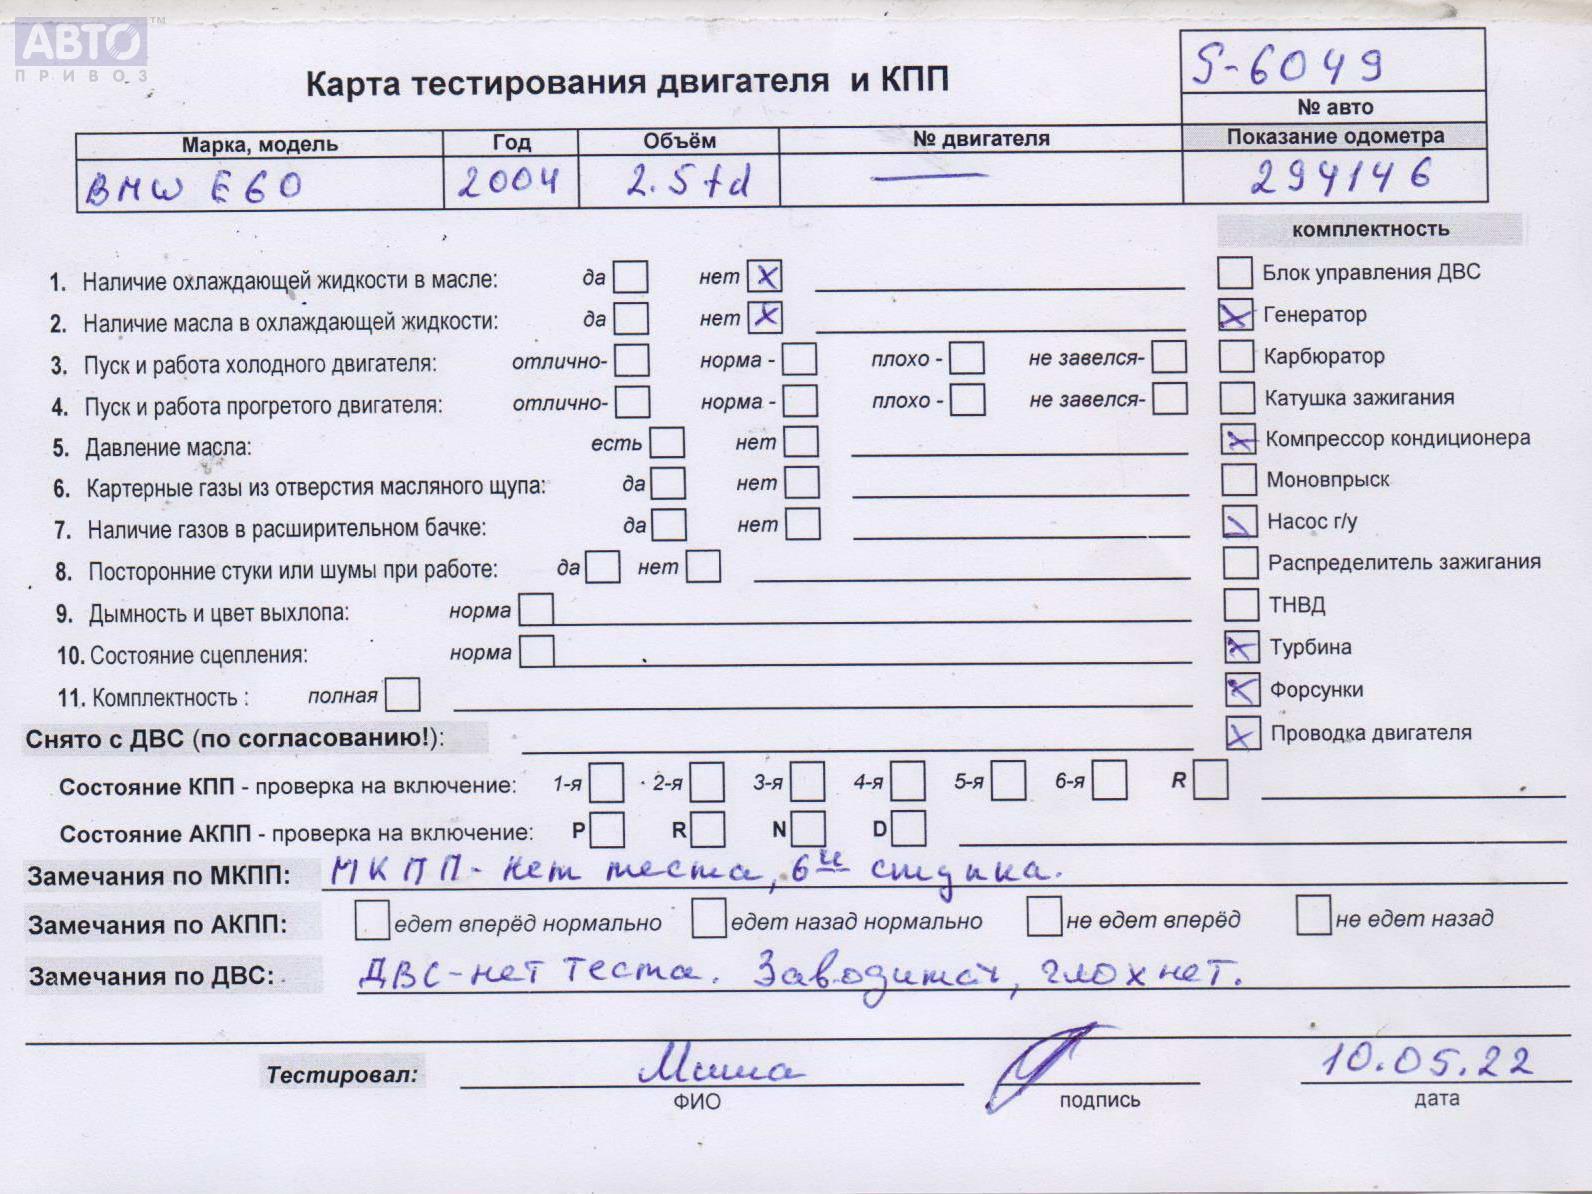 АВТО™
ПРИВОЗ
Карта тестирования двигателя и КПП
S-6049
№ авто
Марка, модель Год Объём № двигателя Показание одометра
BMW E60 2004 2.5td — 294146
комплектность
1. Наличие охлаждающей жидкости в масле: да нет x
Блок управления ДВС
2. Наличие масла в охлаждающей жидкости: да нет x
Генератор
3. Пуск и работа холодного двигателя: отлично- норма - плохо - не завелся-
Карбюратор
4. Пуск и работа прогретого двигателя: отлично- норма - плохо - не завелся-
Катушка зажигания
5. Давление масла: есть нет
Компрессор кондиционера
6. Картерные газы из отверстия масляного щупа: да нет
Моновпрыск
7. Наличие газов в расширительном бачке: да нет
Насос г/у
8. Посторонние стуки или шумы при работе: да нет
Распределитель зажигания
9. Дымность и цвет выхлопа: норма
ТНВД
10. Состояние сцепления: норма
Турбина
11. Комплектность : полная
Форсунки
Снято с ДВС (по согласованию!):
Проводка двигателя
Состояние КПП - проверка на включение: 1-я 2-я 3-я 4-я 5-я 6-я R
Состояние АКПП - проверка на включение: P R N D
Замечания по МКПП: МКПП- нет теста, 6и ступка.
Замечания по АКПП: едет вперёд нормально едет назад нормально не едет вперёд не едет назад
Замечания по ДВС: ДВС-нет теста. Заводится, глохнет.
Тестировал: Миша 10.05.22
ФИО подпись дата